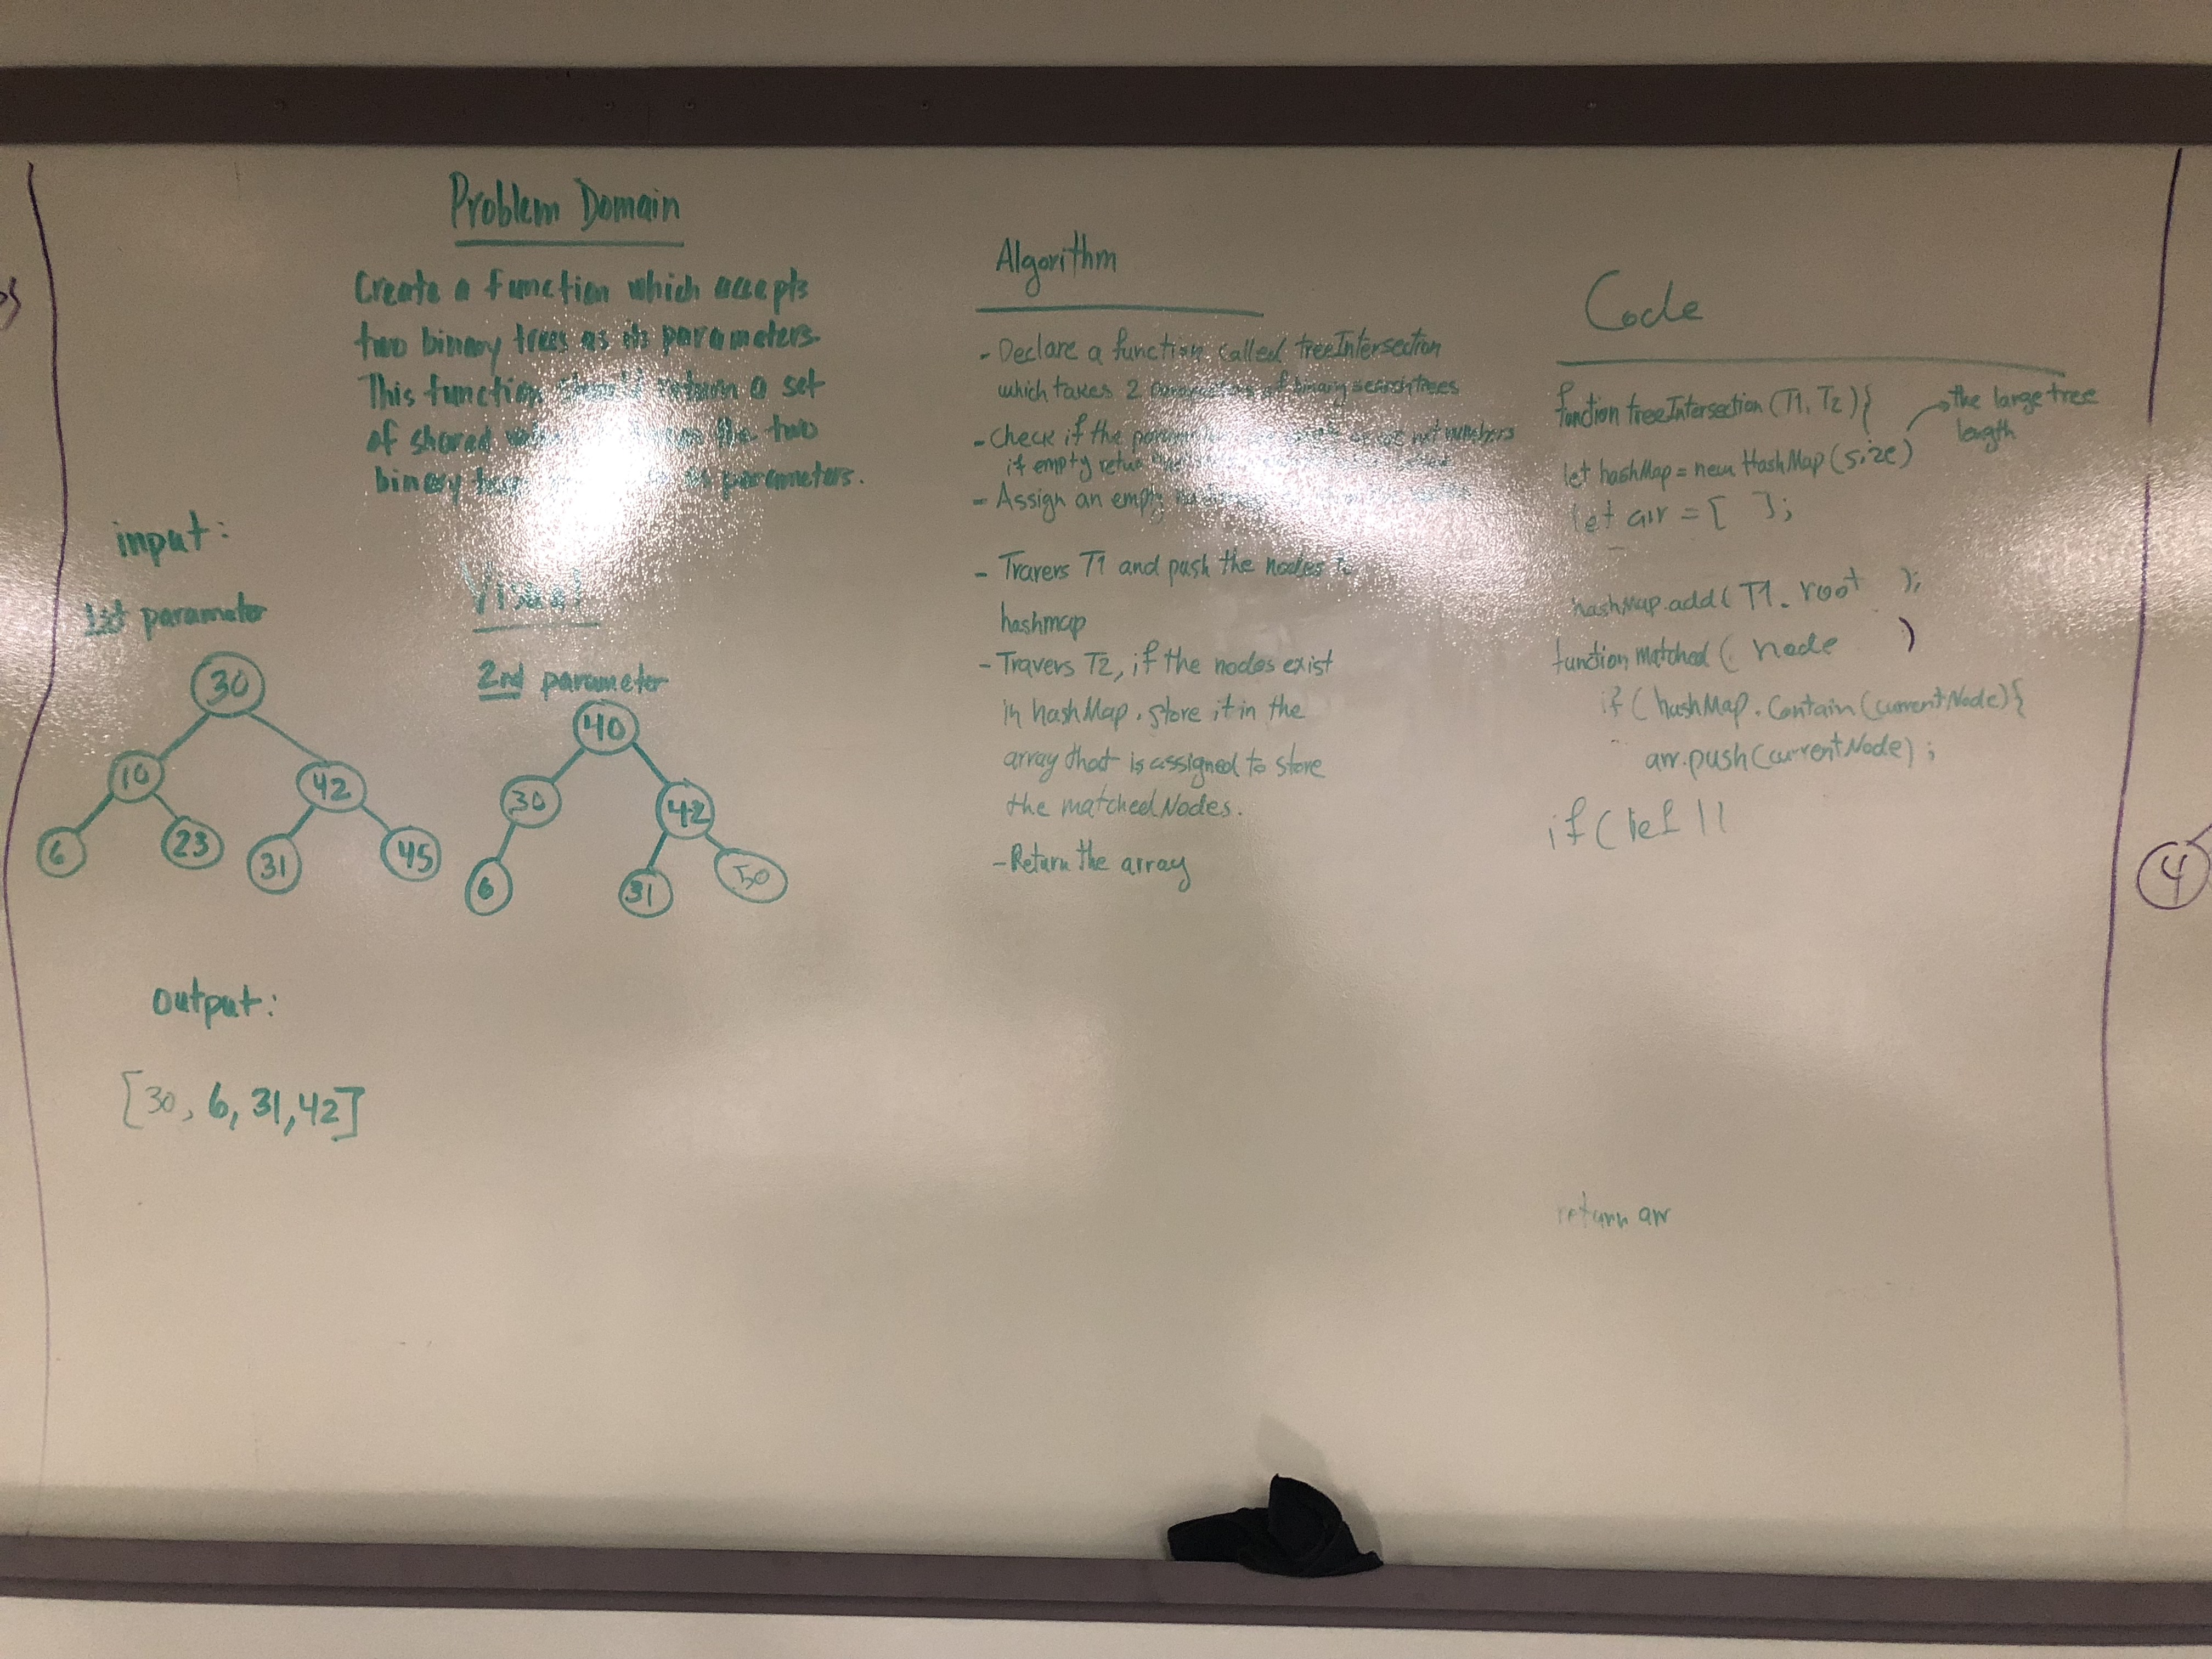 Problem Domain
Create a function which accepts
two binary trees as its parameters.
This function should return a set
of shared the two
binary parameters.
input:
1st parameter
30
10
42
6
23
31
45
Visual
2nd parameter
40
30
42
6
31
50
output:
[30, 6, 31, 42]
Algorithm
- Declare a function called treeIntersection
which takes 2 parameters of binary search trees
- Check if the not numbers
if empty
- Assign an empty
- Travers T1 and push the nodes to
hashmap
- Travers T2, if the nodes exist
in hashMap, store it in the
array that is assigned to store
the matched Nodes.
- Return the array
Code
function treeIntersection (T1, T2) {
the large tree
length
let hashMap = new HashMap (size)
let arr = [ ];
hashMap.add( T1. root );
function matched ( node )
if ( hashMap. Contain (currentNode) {
arr.push (currentNode) ;
if ( lef ||
return arr
4